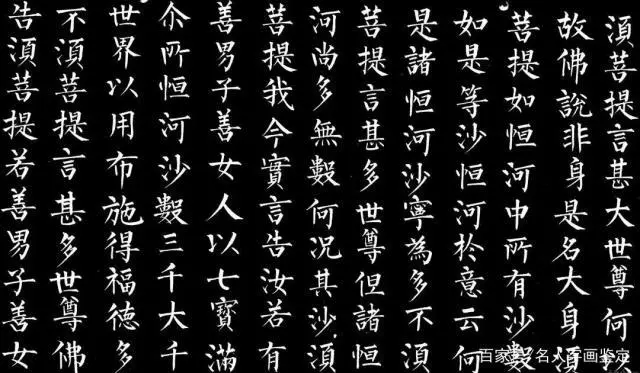 須菩提言甚大世尊何以
故佛說非身是名大身須
菩提如恒河中所有沙數
如是等沙恒河於意云何
是諸恒河沙寧為多不須
菩提言甚多世尊但諸恒
河尚多無數何況其沙須
菩提我今實言告汝若有
善男子善女人以七寶滿
尒所恒河沙數三千大千
世界以用布施得福德多
不須菩提言甚多世尊佛
告須菩提若善男子善女